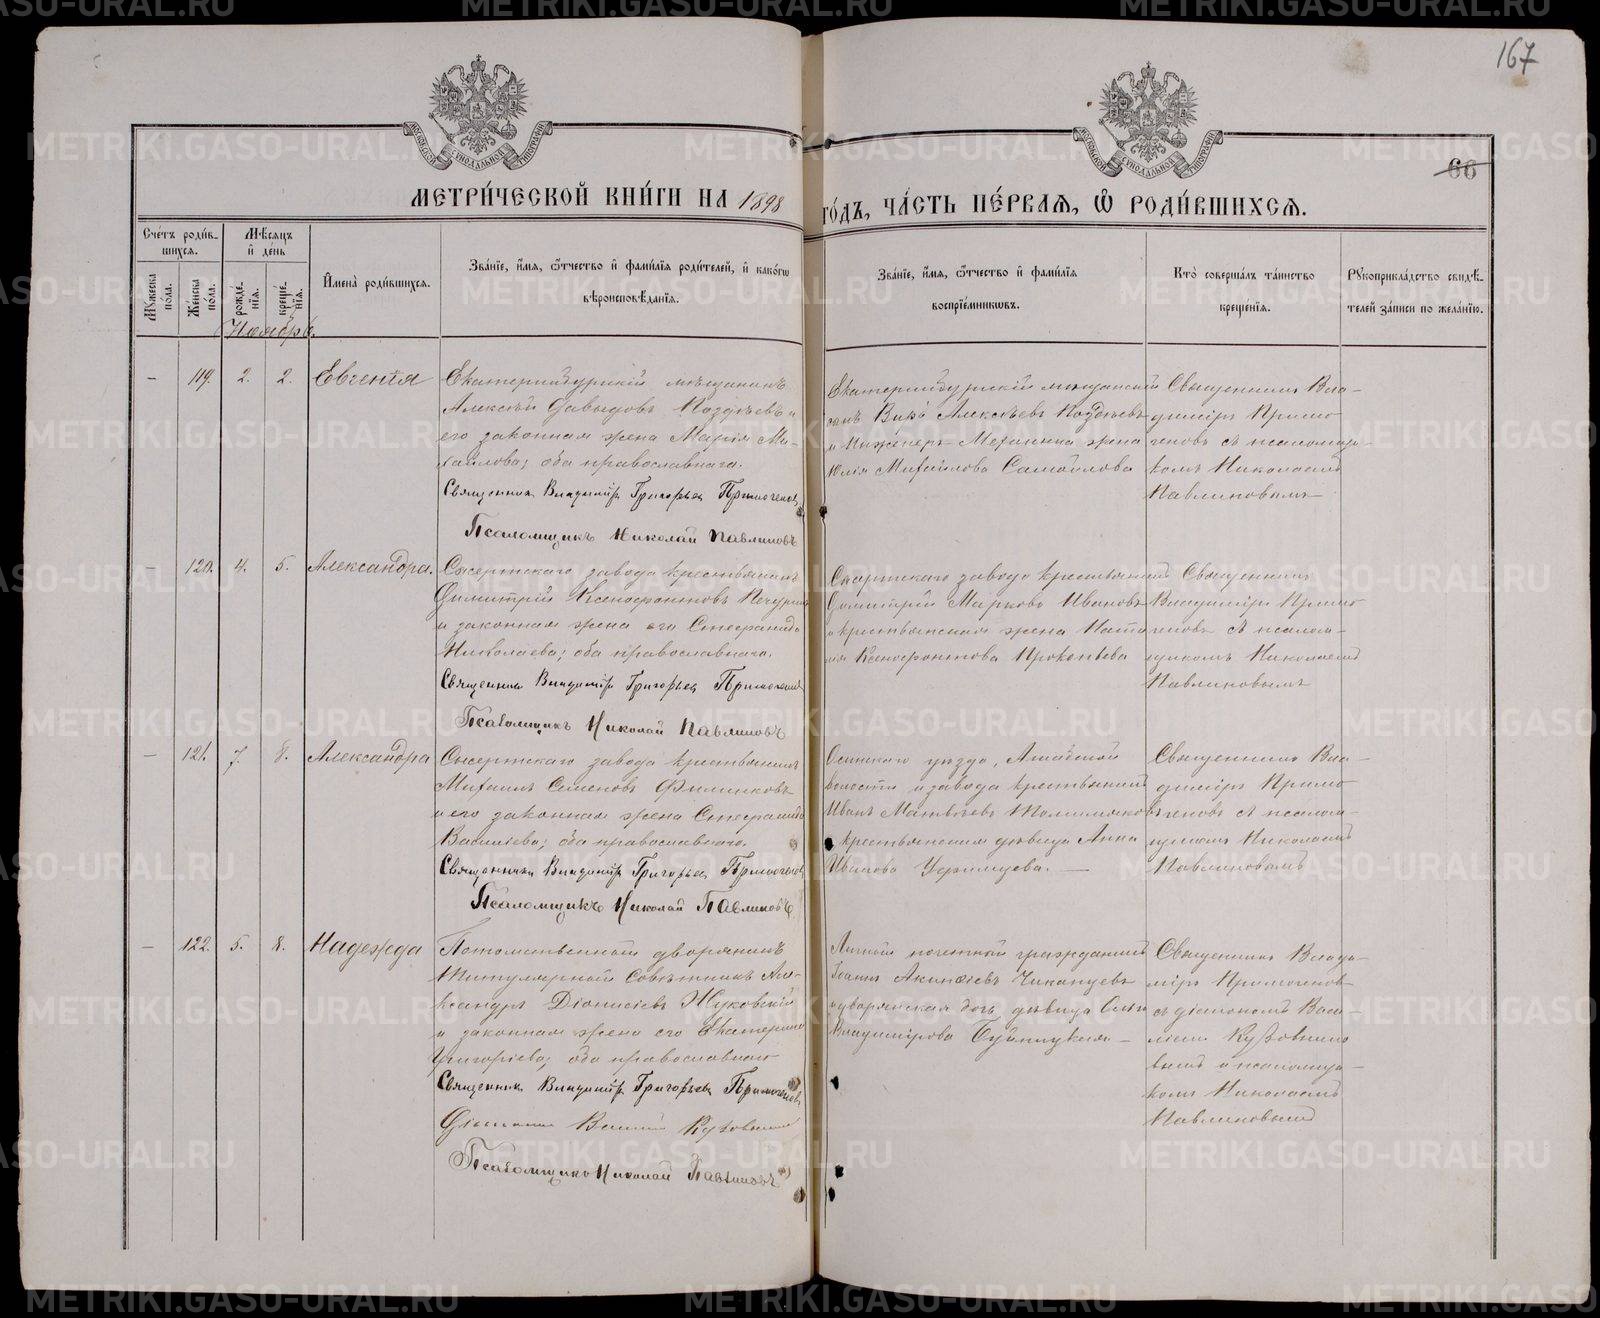 167
66
МОСКОВСКОЙ СѴНОДАЛЬНОЙ ТИПОГРАФІИ
МОСКОВСКОЙ СѴНОДАЛЬНОЙ ТИПОГРАФІИ
МЕТРИ́ЧЕСКОЙ КНИ́ГИ НА 1898 ГО́ДЪ, ЧА́СТЬ ПЕ́РВАѦ, Ѡ РОДИ́ВШИХСѦ.
Сче́тъ роди́вшихся.
Му́жеска по́ла.
Же́нска по́ла.
Мѣ́сяцъ и҆ де́нь
рожде́нїя.
креще́нїя.
И҆мена̀ роди́вшихся.
Зва́нїе, и҆́мя, ѻ҆́тчество и҆ фами́лїя роди́телей, и҆ како́гѡ вѣроисповѣ́данїя.
Зва́нїе, и҆́мя, ѻ҆́тчество и҆ фами́лїя воспрїе́мниковъ.
Кто̀ соверша́лъ та́инство креще́нїя.
Рꙋкоприкла́дство свидѣ́телей за́писи по жела́нїю.
Ноябрь.
— 119. 2. 2. Евгенія
Екатеринбургскій мѣщанинъ
Алексѣй Давыдовъ Поздѣевъ и
его законная жена Марія Ми-
хаилова; оба православнаго.
Священникъ Владиміръ Григорьевъ Примогеновъ
Псаломщикъ Николай Павлиновъ
Екатеринбургскій мѣщанскій
Алексѣевъ Поздѣевъ
и Инженеръ-Механика жена
Юлія Михаилова Самойлова
Священникъ Вла-
диміръ Примо
геновъ съ псаломщи-
комъ Николаемъ
Павлиновымъ
— 120. 4. 5. Александра.
Сысертскаго завода крестьянинъ
Димитрій Ксенофонтовъ Печурин
и законная жена его Стефанида
Николаева; оба православнаго.
Священникъ Владиміръ Григорьевъ Примогеновъ
Псаломщикъ Николай Павлиновъ
Сысертскаго завода крестьянинъ
Димитрій Марковъ Ивановъ
и крестьянская жена Ната
лія Ксенофонтова Прокопьева
Священникъ
Владиміръ Примо
геновъ съ псалом-
щикомъ Николаемъ
Павлиновымъ
— 121. 7. 8. Александра
Сысертскаго завода крестьянинъ
Михаилъ Семеновъ Филинковъ
и его законная жена Стефанида
Василіева; оба православнаго.
Священникъ Владиміръ Григорьевъ Примогеновъ
Псаломщикъ Николай Павлиновъ
Осинскаго уѣзда,
волости и завода крестьянинъ
Иванъ Матвѣевъ
и крестьянская дѣвица Анна
Иванова —
Священникъ Вла-
диміръ Примо
геновъ съ псалом-
щикомъ Николаемъ
Павлиновымъ
— 122. 5. 8. Надежда
Потомственный дворянинъ
Титулярный Совѣтникъ Але-
ксандръ Діонисіевъ Жуковскій
и законная жена его Екатерина
Григоріева; оба православнаго
Священникъ Владиміръ Григорьевъ Примогеновъ
Діаконъ Василій Кузовниковъ
Псаломщикъ Николай Павлиновъ
Личный почетный гражданинъ
Іоаннъ Акинѳіевъ Чиканцевъ
и дворянская дочь дѣвица Ольга
Владимірова Буйницкая —
Священникъ Влади-
міръ Примогеновъ
съ діакономъ Васи-
ліемъ Кузовнико
вымъ и псаломщи-
комъ Николаемъ
Павлиновымъ
METRIKI.GASO-URAL.RU